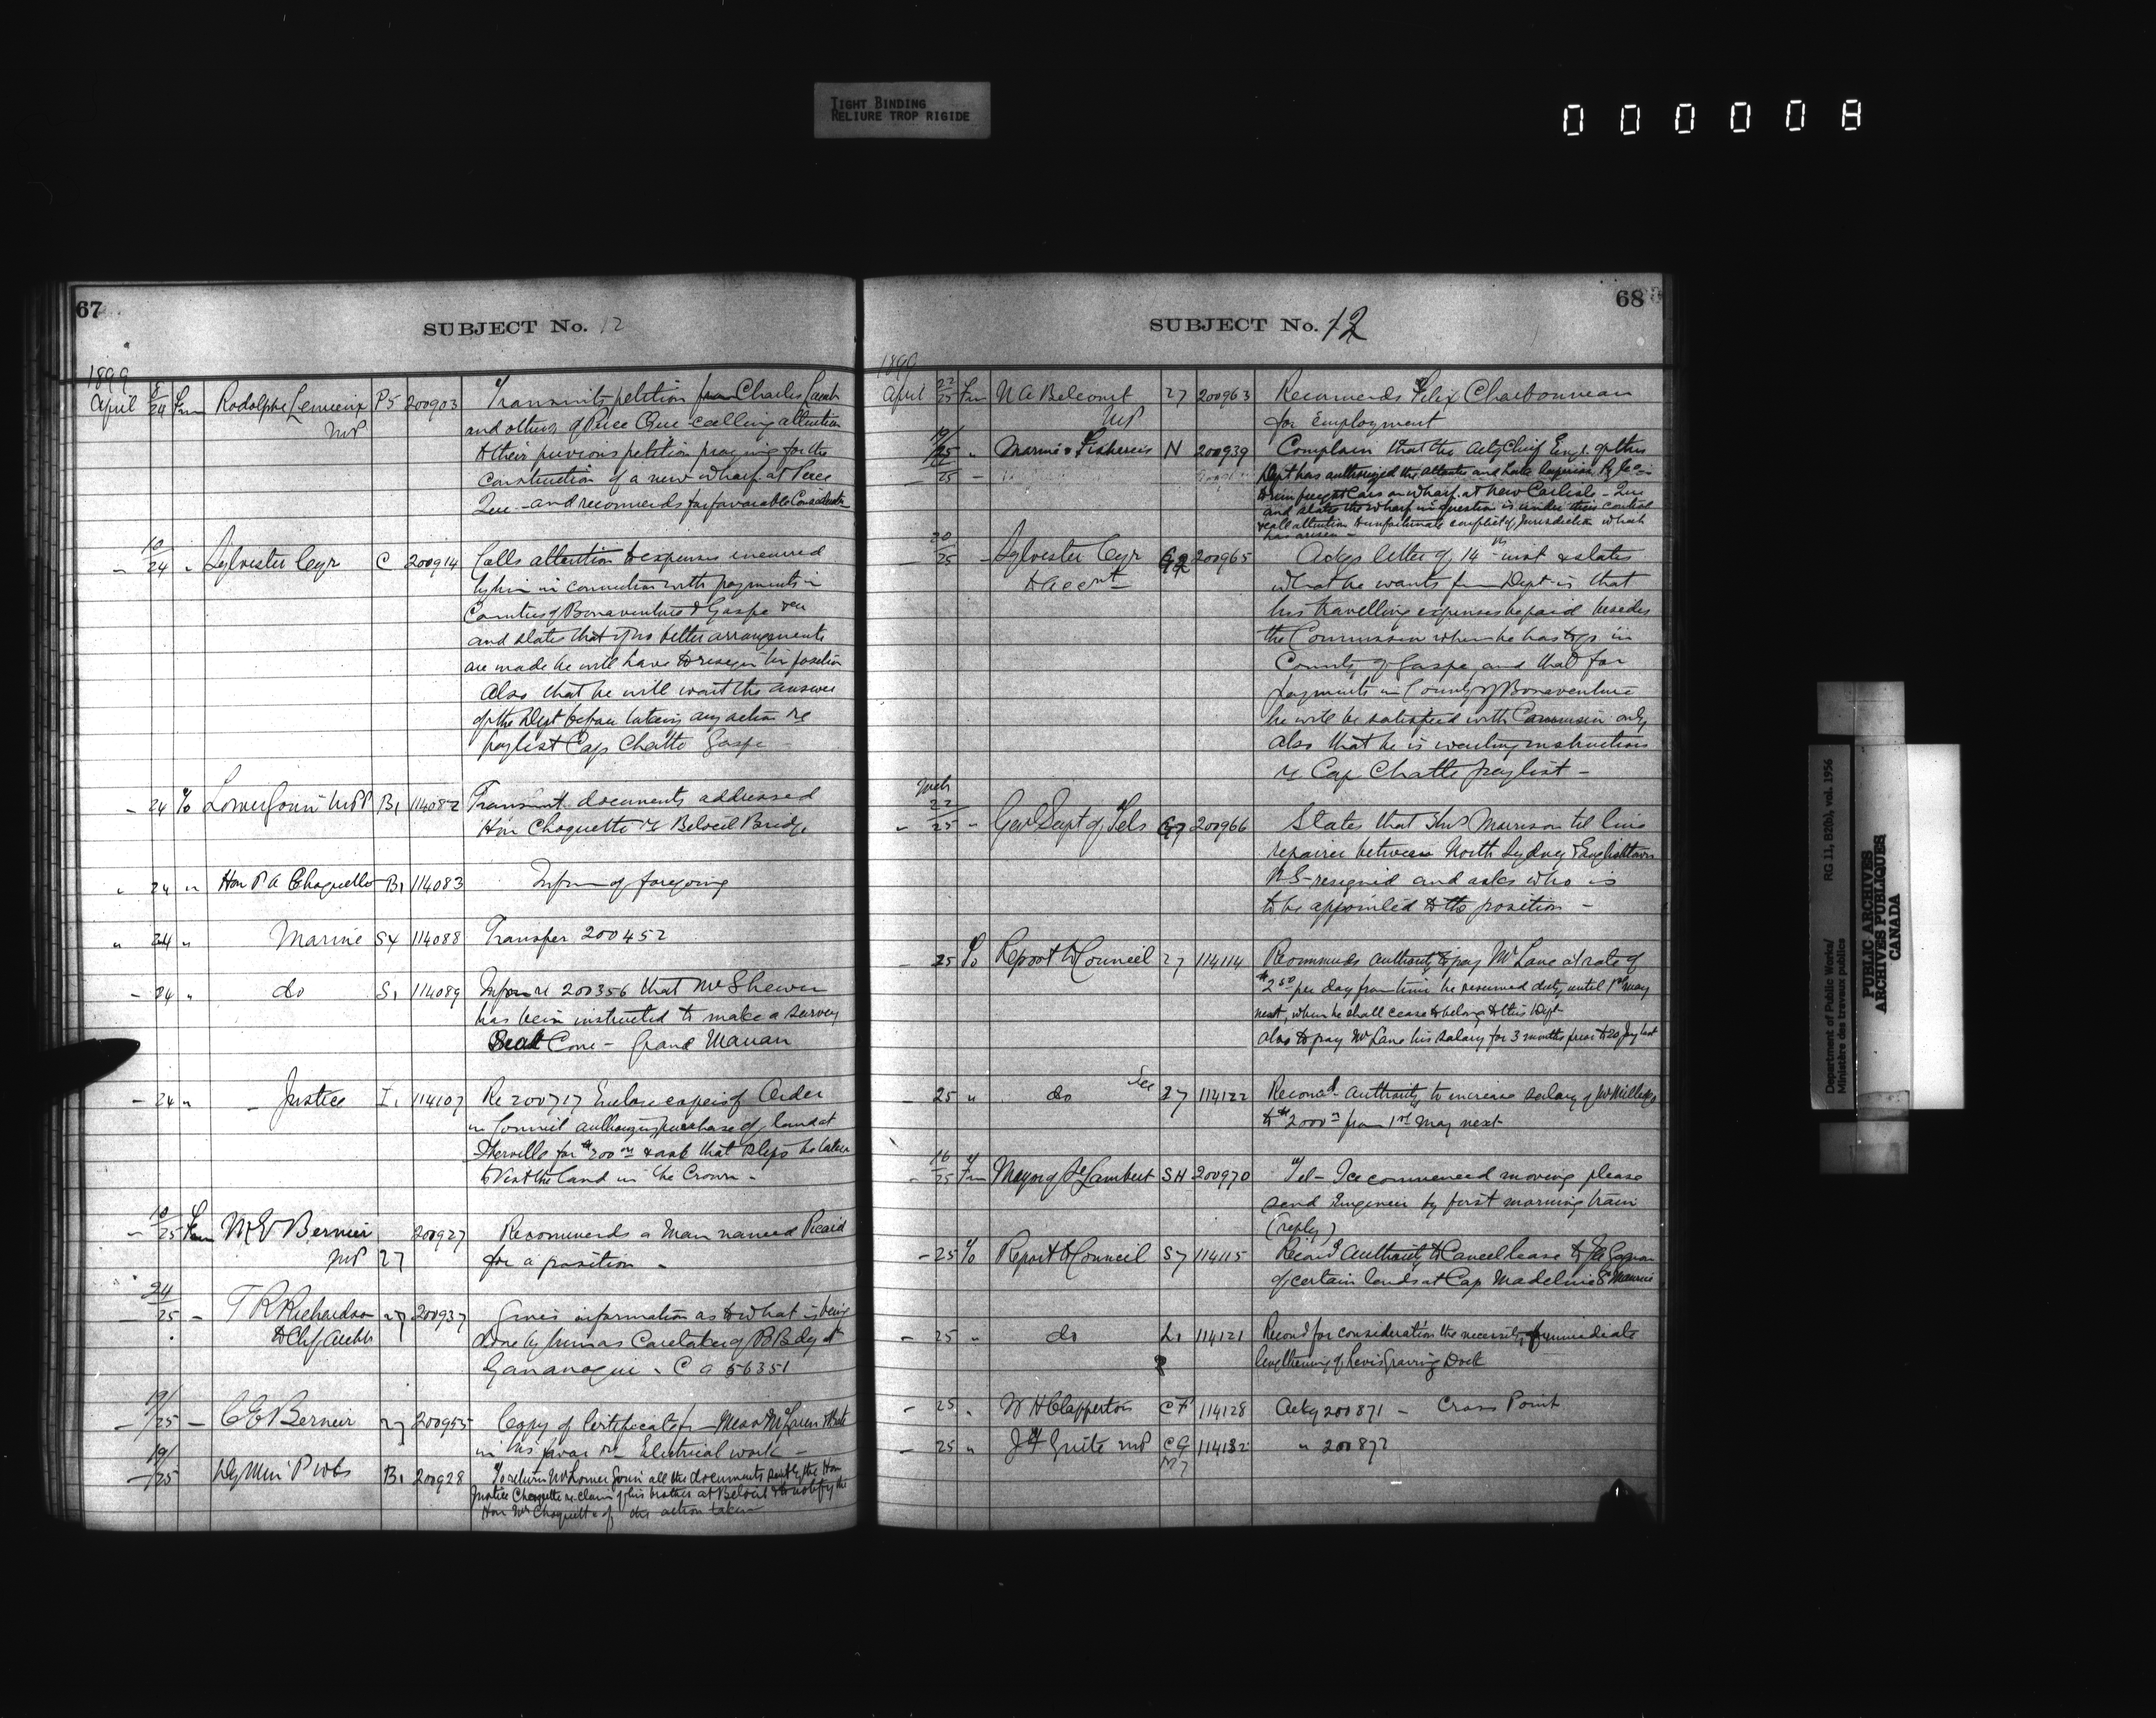 TIGHT BINDING
RELIURE TROP RIGIDE
000008
67
SUBJECT No. 12
1899
April 8/24 Fm Rodolphe Lemieux MP P5 200903 Transmits petition from Charles
and others of Perce Que calling attention
to their previous petition praying for the
construction of a new wharf at Perce
Que - and recommends for favorable Consideration
- 10/24 " Sylvester Cyr C 200914 Calls attention to expenses incurred
by him in connection with payments in
Counties of Bonaventure & Gaspe
and states that if no better arrangements
are made he will have to resign his position
Also that he will wait the answer
of the Dept before taking any action re
paylist Cap Chatte Gaspe -
- 24 To Lomer Gouin MPP B1 114082 Transmit documents addressed
Hon Choquette re Beloeil Bridge
" 24 " Hon P A Choquette B1 114083 Inform of foregoing
" 24 " Marine S4 114088 Transfer 200452
- 24 " do S1 114089 Inform re 200356 that Mr Shewen
has been instructed to make a survey
Seal Cove - Grand Manan
- 24 " Justice I1 114107 Re 200717 Enclose copies of Order
in Council authorizing purchase of land at
Iberville for $200 00 & ask that steps be taken
to vest the land in the Crown -
- 10/25 Fm M E Bernier MP 27 200927 Recommends a man named Picard
for a position -
- 24/25 - T R Richardson to Chf Archt 27 200937 Gives information as to what is being
done by him as Caretaker of P Bdg at
Gananoque - C A 56351
- 19/25 - C E Bernier 27 200955 Copy of Certificate
in his favor re Electrical work -
- 19/25 Dy Min P Wks B1 200928 To return Mr Lomer Gouin all the documents sent by the Hon
Justice Choquette re claim of his brother at Beloeil & to notify the
Hon Mr Choquette of the action taken
68
SUBJECT No. 12
1899
April 22/25 Fm N A Belcourt MP 27 200963 Recommends Felix Charbonneau
for employment
19/25 " Marine & Fisheries N 200939 Complain that the Actg Chief Engr of this
Dept has authorized the Atlantic and Lake Superior Ry Co
to run freight Cars on wharf at New Carlisle - Que
and states the wharf in question is under their control
& call attention to unfortunate conflict of Jurisdiction which
has arisen -
- 20/25 - Sylvester Cyr to Acct G2 200965 Ackgs letter of 14th inst & states
what he wants from Dept is that
his travelling expenses be paid besides
the Commission when he has to go in
County of Gaspe and that for
payments in County of Bonaventure
he will be satisfied with Commission only
also that he is waiting instructions
re Cap Chatte paylist -
Mch 22/25 - Gen Supt of Tels G7 200966 States that Morrison tel line
repairer between North Sydney & Englishtown
N S - resigned and asks who is
to be appointed to the position -
- 25 To Report to Council 27 114114 Recommends authority to pay Mr Lane at rate of
$2 50 per day from time he resumed duty until 1st May
next, when he shall cease to belong to this Dept
also to pay Mr Lane his salary for 3 months prior to 20 last
- 25 " do 27 114122 Recomd authority to increase salary of Mr
to $2000 00 from 1st May next
- 16/25 Fm Mayor of St Lambert SH 200970 Tel - Ice commenced moving please
send Engineer by first morning train
(reply)
- 25 To Report to Council S7 114115 Recomd Authority to Cancel lease to
of certain lands at Cap Madeleine St Maurice
- 25 " do L1 114121 Recomd for consideration the necessity of immediate
lengthening of Levis Graving Dock
- 25 " W H Clapperton CF 114128 Ackg 200871 - Cross Point
- 25 " J F Guite MP CG M7 114132 " 200872
Department of Public Works/ RG 11, B2(b), vol. 1956
Ministère des travaux publics
PUBLIC ARCHIVES
ARCHIVES PUBLIQUES
CANADA